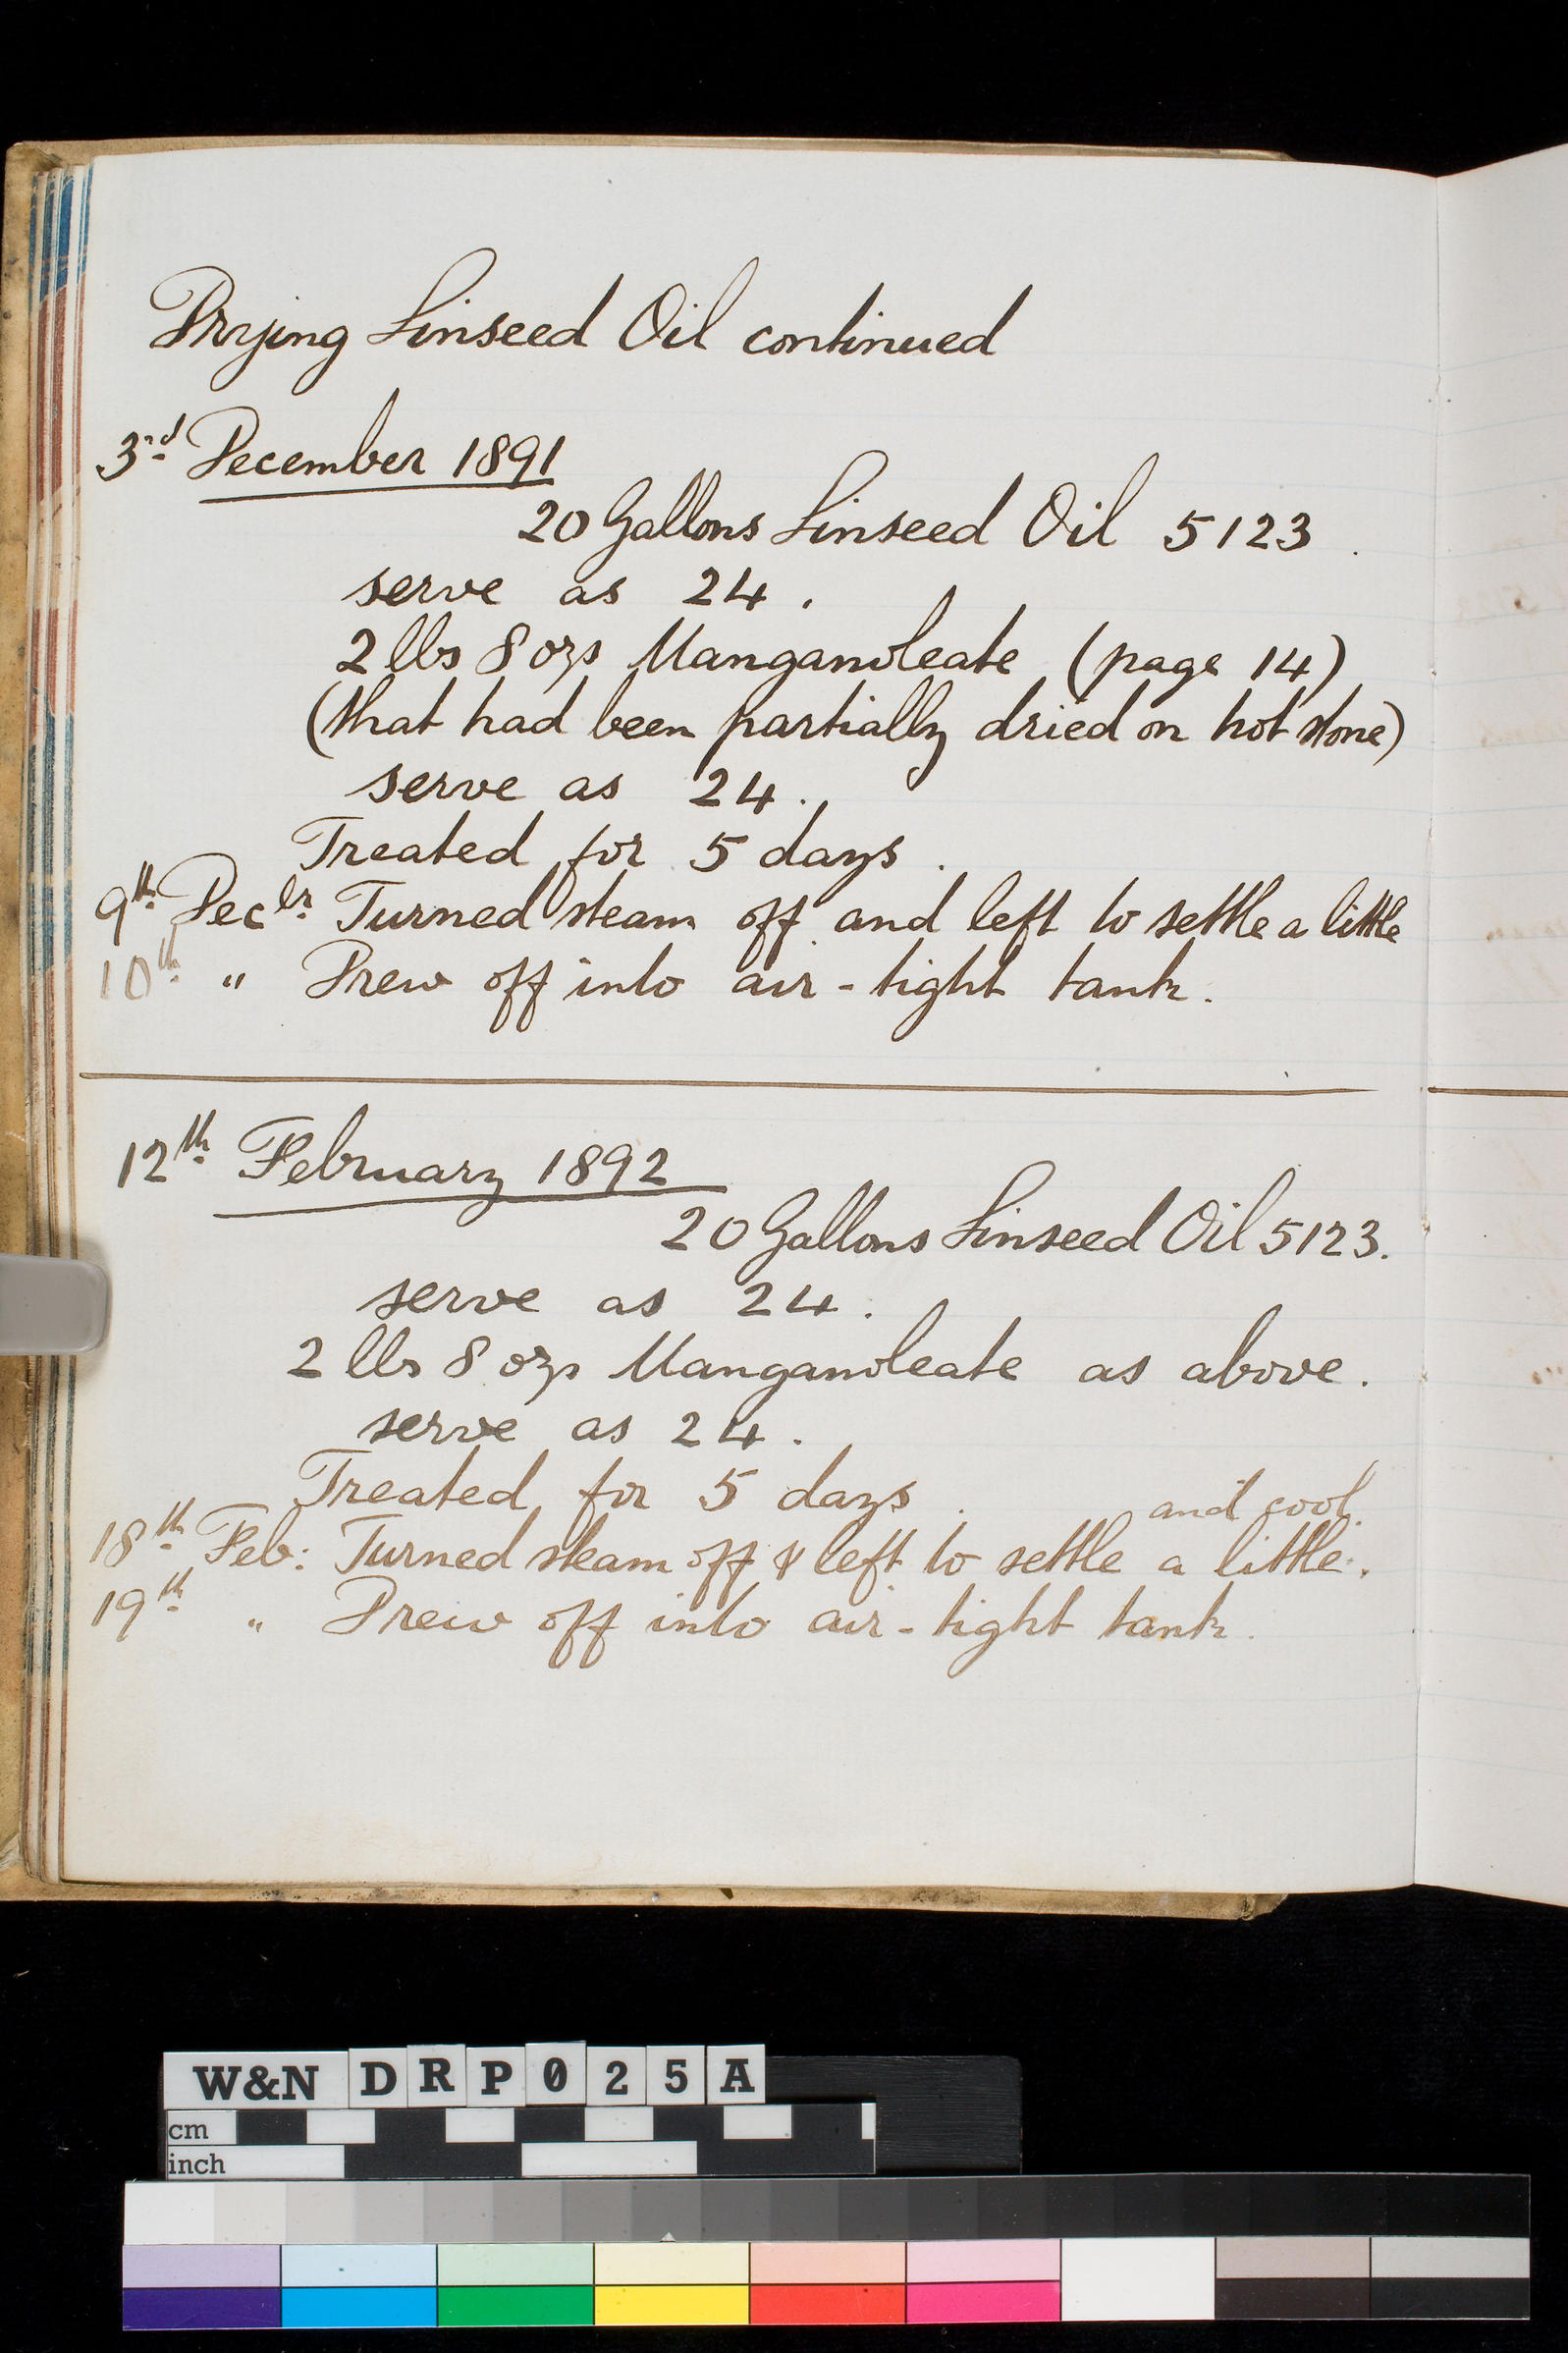 Drying Linseed Oil continued
3rd December 1891
20 Gallons Linseed Oil 5123.
serve as 24.
2 lbs 8 ozs Manganoleate (page 14)
(that had been partially dried on hot stone)
serve as 24.
Treated for 5 days.
9th Decbr. Turned steam off and left to settle a little
10th " Drew off into air-tight tank.
12th February 1892
20 Gallons Linseed Oil 5123.
serve as 24.
2 lbs 8 ozs Manganoleate as above.
serve as 24.
Treated for 5 days.
and cool.
18th Feb: Turned steam off & left to settle a little.
19th " Drew off into air-tight tank.
W&N DRP025A
cm
inch